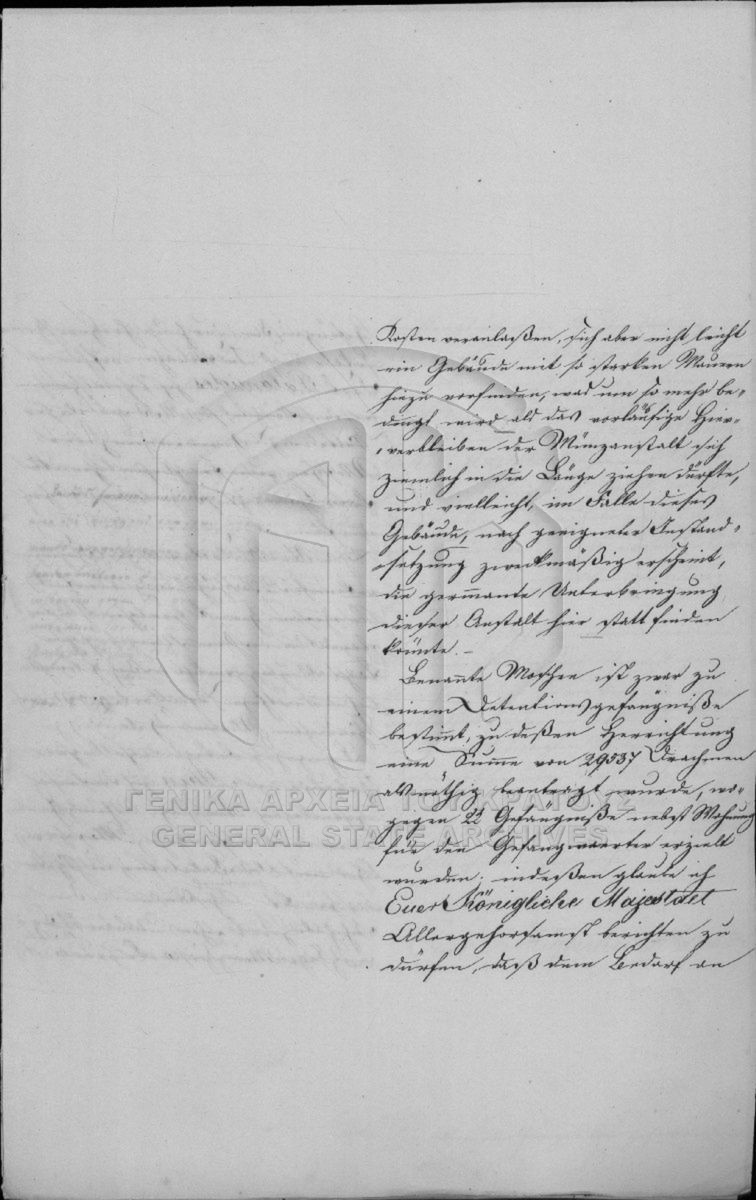 Kosten veranlaßen, sich aber nicht leicht
ein Gebäude mit so starken Mauern
hiezu vorfinden, was um so mehr be-
dingt wird als das vorläufige Hier-
verbleiben der Münzanstalt sich
ziemlich in die Länge ziehen dürfte,
und vielleicht, im Falle dieses
Gebäude, nach geeigneter Instand-
setzung zweckmäßig erscheint,
die permanente Unterbringung
dieser Anstalt hier statt finden
könnte. –
Benannte Moschee ist zwar zu
einem Detentionsgefängniße
bestimmt, zu deßen Herrichtung
eine Summe von 29537 Drachmen
als nöthig beantragt wurde, wo-
gegen 23 Gefängniße nebst Wohnung
für den Gefangwaerter erzielt
wurden; indeßen glaube ich
Euer Königliche Majestaet
Allergehorsamst berichten zu
dürfen, daß dem Bedarf an
ΓΕΝΙΚΑ ΑΡΧΕΙΑ ΤΟΥ ΚΡΑΤΟΥΣ
GENERAL STATE ARCHIVES